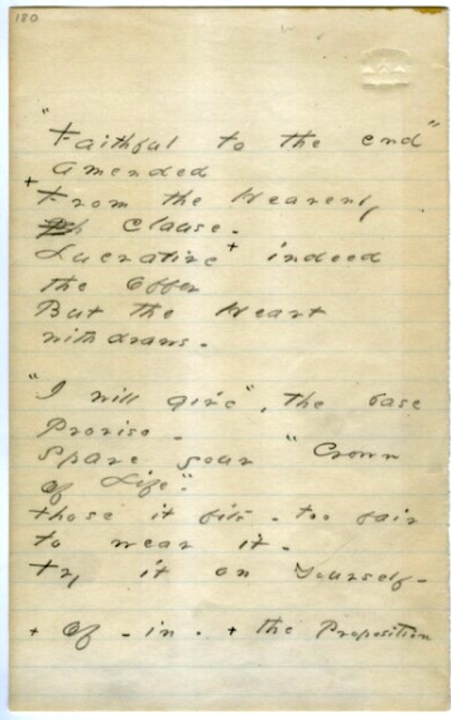 180
"Faithful to the end"
amended
+ From the Heavenly
Clause -
Lucrative + indeed
the Offer
But the Heart
withdraws -
"I will give", the base
Proviso -
Spare your "Crown
of Life".
Those it fits - too fair
to wear it -
Try it on Yourself -
+ Of - in - + the Proposition